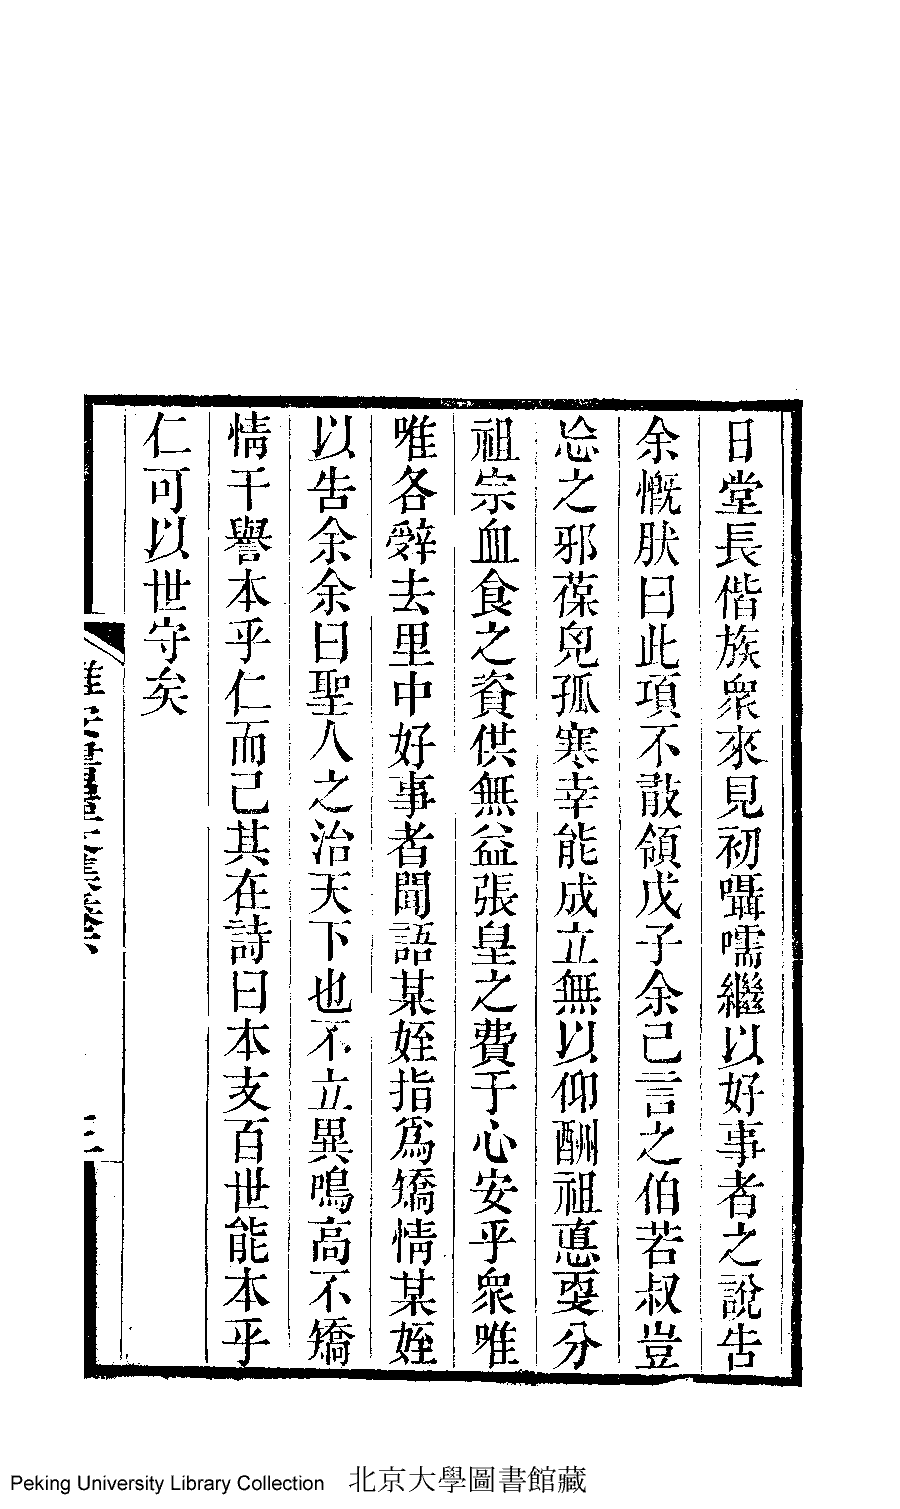 日堂長偕族衆來見初囁嚅繼以好事者之說告
余慨肰曰此項不敢領戊子余已言之伯若叔豈
忘之邪葆兒孤寒幸能成立無以仰酬祖悳耎分
祖宗血食之資供無益張皇之費于心安乎衆唯
唯各辤去里中好事者聞語某姪指爲矯情某姪
以告余余曰聖人之治天下也不立異鳴高不矯
情干譽本乎仁而已其在詩曰本支百世能本乎
仁可以世守矣
三
Peking University Library Collection 北京大學圖書館藏